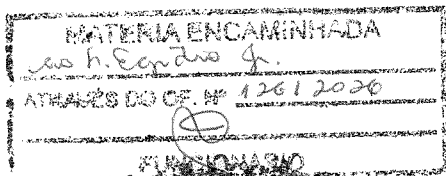 MATERIA ENCAMINHADA
ao h. Egidio Jr.
ATRAVÉS DO OF. Nº 126 / 2026
FUNCIONARIO